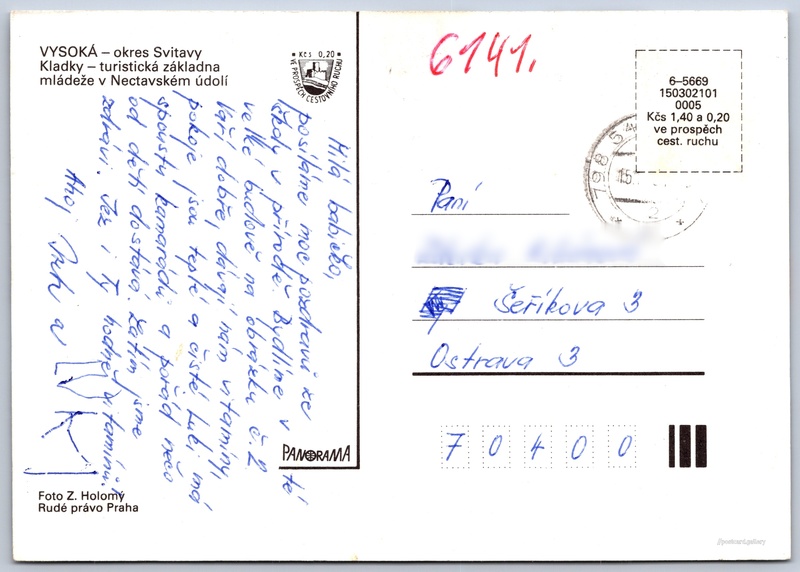 VYSOKÁ – okres Svitavy
Kladky – turistická základna
mládeže v Nectavském údolí
Kčs 0,20
VE PROSPĚCH CESTOVNÍHO RUCHU
6141.
6–5669
150302101
0005
Kčs 1,40 a 0,20
ve prospěch
cest. ruchu
798 5
15.
2
Milá babičko,
posíláme moc pozdravů ze
školy v přírodě. Bydlíme v té
velké budově na obrázku č. 2
Vaří dobře, dávají nám vitamíny,
pokoje jsou teplé a čisté. Lubi má
spoustu kamarádů a pořád něco
od dětí dostává. Zatím jsme
zdraví. Jez i Ty hodně vitamínů.
Ahoj
a
Paní
Šeříkova 3
Ostrava 3
70400
PANORAMA
Foto Z. Holomý
Rudé právo Praha
//postcard.gallery